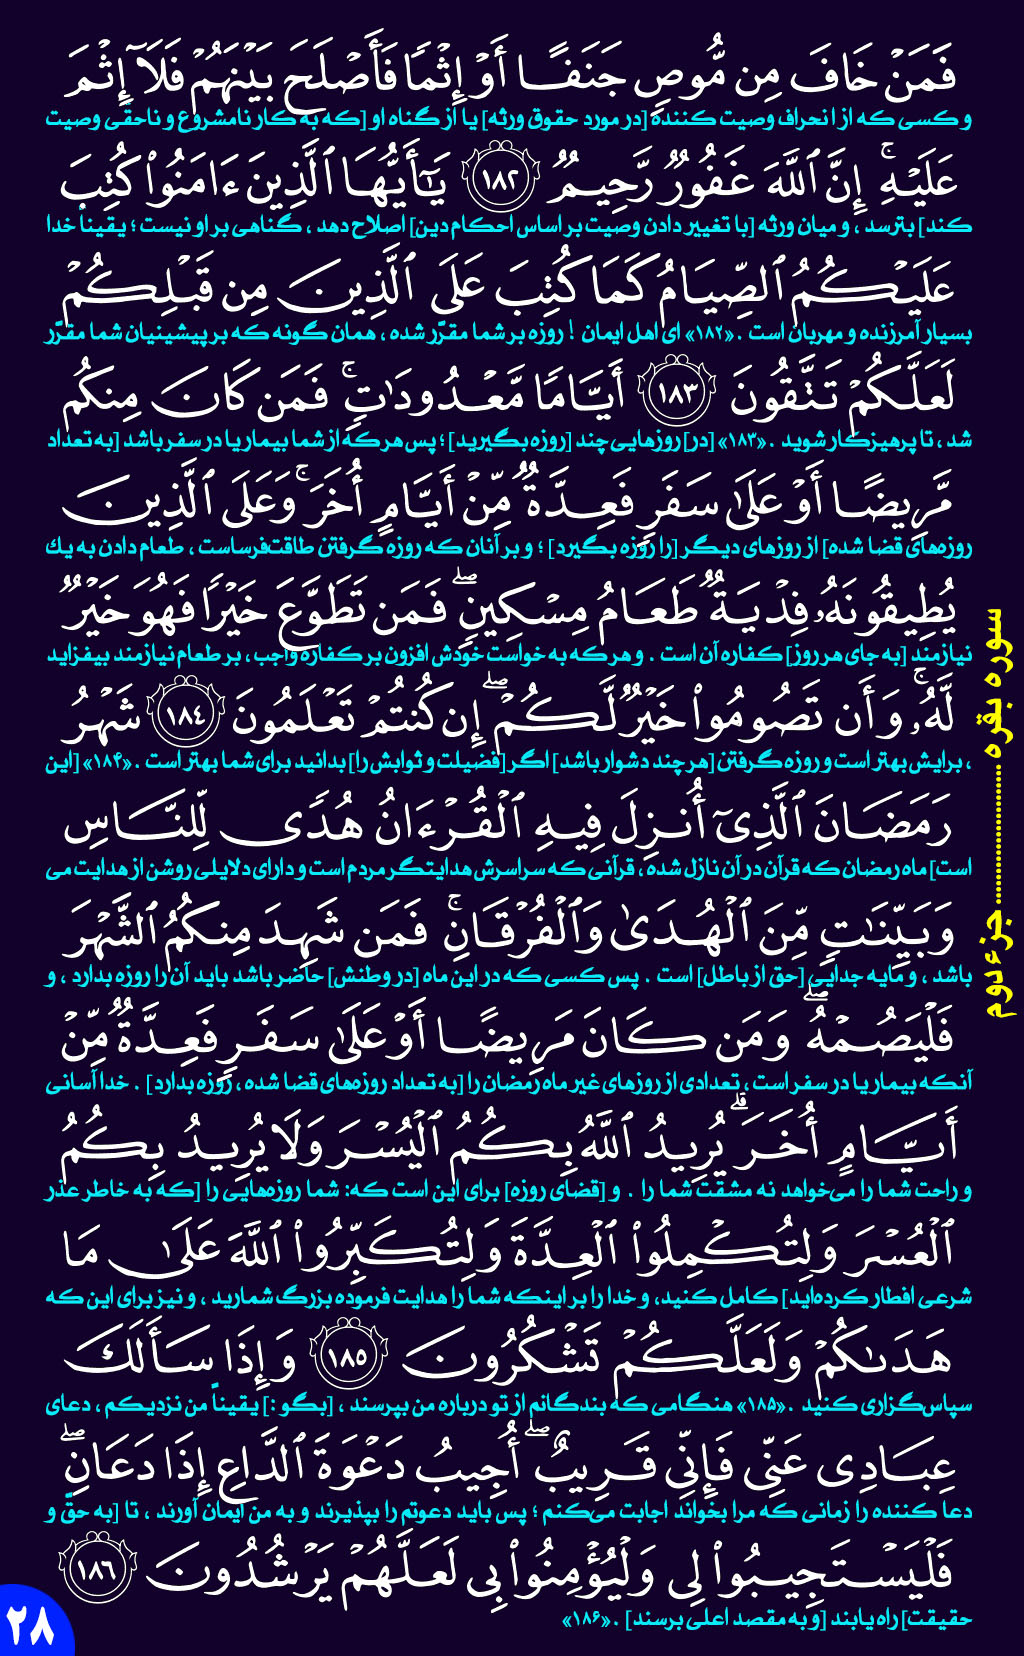 فَمَنْ خَافَ مِن مُّوصٍ جَنَفًا أَوْ إِثْمًا فَأَصْلَحَ بَيْنَهُمْ فَلَآ إِثْمَ
و کسی که از انحراف وصیت کننده [در مورد حقوق ورثه] یا از گناه او [که به کار نامشروع و ناحقّی وصیت
عَلَيْهِ ۚ إِنَّ ٱللَّهَ غَفُورٌ رَّحِيمٌ ۝١٨٢ يَـٰٓأَيُّهَا ٱلَّذِينَ ءَامَنُوا۟ كُتِبَ
کند] بترسد ، و میان ورثه [با تغییر دادن وصیت بر اساس احکام دین] اصلاح دهد ، گناهی بر او نیست ؛ یقیناً خدا
عَلَيْكُمُ ٱلصِّيَامُ كَمَا كُتِبَ عَلَى ٱلَّذِينَ مِن قَبْلِكُمْ
بسیار آمرزنده و مهربان است .«۱۸۲» ای اهل ایمان ! روزه بر شما مقرّر شده ، همان گونه که بر پیشینیان شما مقرّر
لَعَلَّكُمْ تَتَّقُونَ ۝١٨٣ أَيَّامًا مَّعْدُودَٰتٍ ۚ فَمَن كَانَ مِنكُم
شد ، تا پرهیزکار شوید .«۱۸۳» [در] روزهایی چند [روزه بگیرید] ؛ پس هر که از شما بیمار یا در سفر باشد [به تعداد
مَّرِيضًا أَوْ عَلَىٰ سَفَرٍ فَعِدَّةٌ مِّنْ أَيَّامٍ أُخَرَ ۚ وَعَلَى ٱلَّذِينَ
روزه‌های قضا شده] از روزهای دیگر [را روزه بگیرد] ؛ و بر آنان که روزه گرفتن طاقت‌فرساست ، طعام دادن به یك
يُطِيقُونَهُۥ فِدْيَةٌ طَعَامُ مِسْكِينٍ ۖ فَمَن تَطَوَّعَ خَيْرًا فَهُوَ خَيْرٌ
نیازمند [به جای هر روز] کفاره آن است . و هر که به خواست خودش افزون بر کفاره واجب ، بر طعام نیازمند بیفزاید
لَّهُۥ ۚ وَأَن تَصُومُوا۟ خَيْرٌ لَّكُمْ ۖ إِن كُنتُمْ تَعْلَمُونَ ۝١٨٤ شَهْرُ
، برایش بهتر است و روزه گرفتن [هر چند دشوار باشد] اگر [فضیلت و ثوابش را] بدانید برای شما بهتر است .«۱۸۴» [این
رَمَضَانَ ٱلَّذِىٓ أُنزِلَ فِيهِ ٱلْقُرْءَانُ هُدًى لِّلنَّاسِ
است] ماه رمضان که قرآن در آن نازل شده ، قرآنی که سراسرش هدایتگر مردم است و دارای دلایلی روشن از هدایت می
وَبَيِّنَـٰتٍ مِّنَ ٱلْهُدَىٰ وَٱلْفُرْقَانِ ۚ فَمَن شَهِدَ مِنكُمُ ٱلشَّهْرَ
باشد ، و مایه جدایی [حق از باطل] است . پس کسی که در این ماه [در وطنش] حاضر باشد باید آن را روزه بدارد ، و
فَلْيَصُمْهُ ۖ وَمَن كَانَ مَرِيضًا أَوْ عَلَىٰ سَفَرٍ فَعِدَّةٌ مِّنْ
آنکه بیمار یا در سفر است ، تعدادی از روزهای غیر ماه رمضان را [به تعداد روزه‌های قضا شده ، روزه بدارد] . خدا آسانی
أَيَّامٍ أُخَرَ ۗ يُرِيدُ ٱللَّهُ بِكُمُ ٱلْيُسْرَ وَلَا يُرِيدُ بِكُمُ
و راحت شما را می‌خواهد نه مشقت شما را . و [قضای روزه] برای این است که: شما روزه‌هایی را [که به خاطر عذر
ٱلْعُسْرَ وَلِتُكْمِلُوا۟ ٱلْعِدَّةَ وَلِتُكَبِّرُوا۟ ٱللَّهَ عَلَىٰ مَا
شرعی افطار کرده‌اید] کامل کنید، و خدا را بر اینکه شما را هدایت فرموده بزرگ شمارید ، و نیز برای این که
هَدَىٰكُمْ وَلَعَلَّكُمْ تَشْكُرُونَ ۝١٨٥ وَإِذَا سَأَلَكَ
سپاس‌گزاری کنید .«۱۸۵» هنگامی که بندگانم از تو درباره من بپرسند ، [بگو :] یقیناً من نزدیکم ، دعای
عِبَادِى عَنِّى فَإِنِّى قَرِيبٌ ۖ أُجِيبُ دَعْوَةَ ٱلدَّاعِ إِذَا دَعَانِ ۖ
دعا کننده را زمانی که مرا بخواند اجابت می‌کنم ؛ پس باید دعوتم را بپذیرند و به من ایمان آورند ، تا [به حقّ و
فَلْيَسْتَجِيبُوا۟ لِى وَلْيُؤْمِنُوا۟ بِى لَعَلَّهُمْ يَرْشُدُونَ ۝١٨٦
حقیقت] راه یابند [و به مقصد اعلی برسند] .«۱۸۶»
سوره بقره ........................ جزء دوم
۲۸